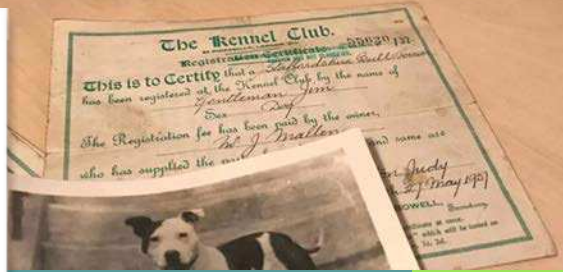 The Kennel Club.
Registration Certificate. 55030
This is to Certify that a Staffordshire Bull Terrier
has been registered at the Kennel Club by the name of
Gentleman Jim
Sex Dog
The Registration fee has been paid by the owner,
W J Mallen
who has supplied the and same are
Judy
27 May 1937
Secretary.
at once.
which will be issued on